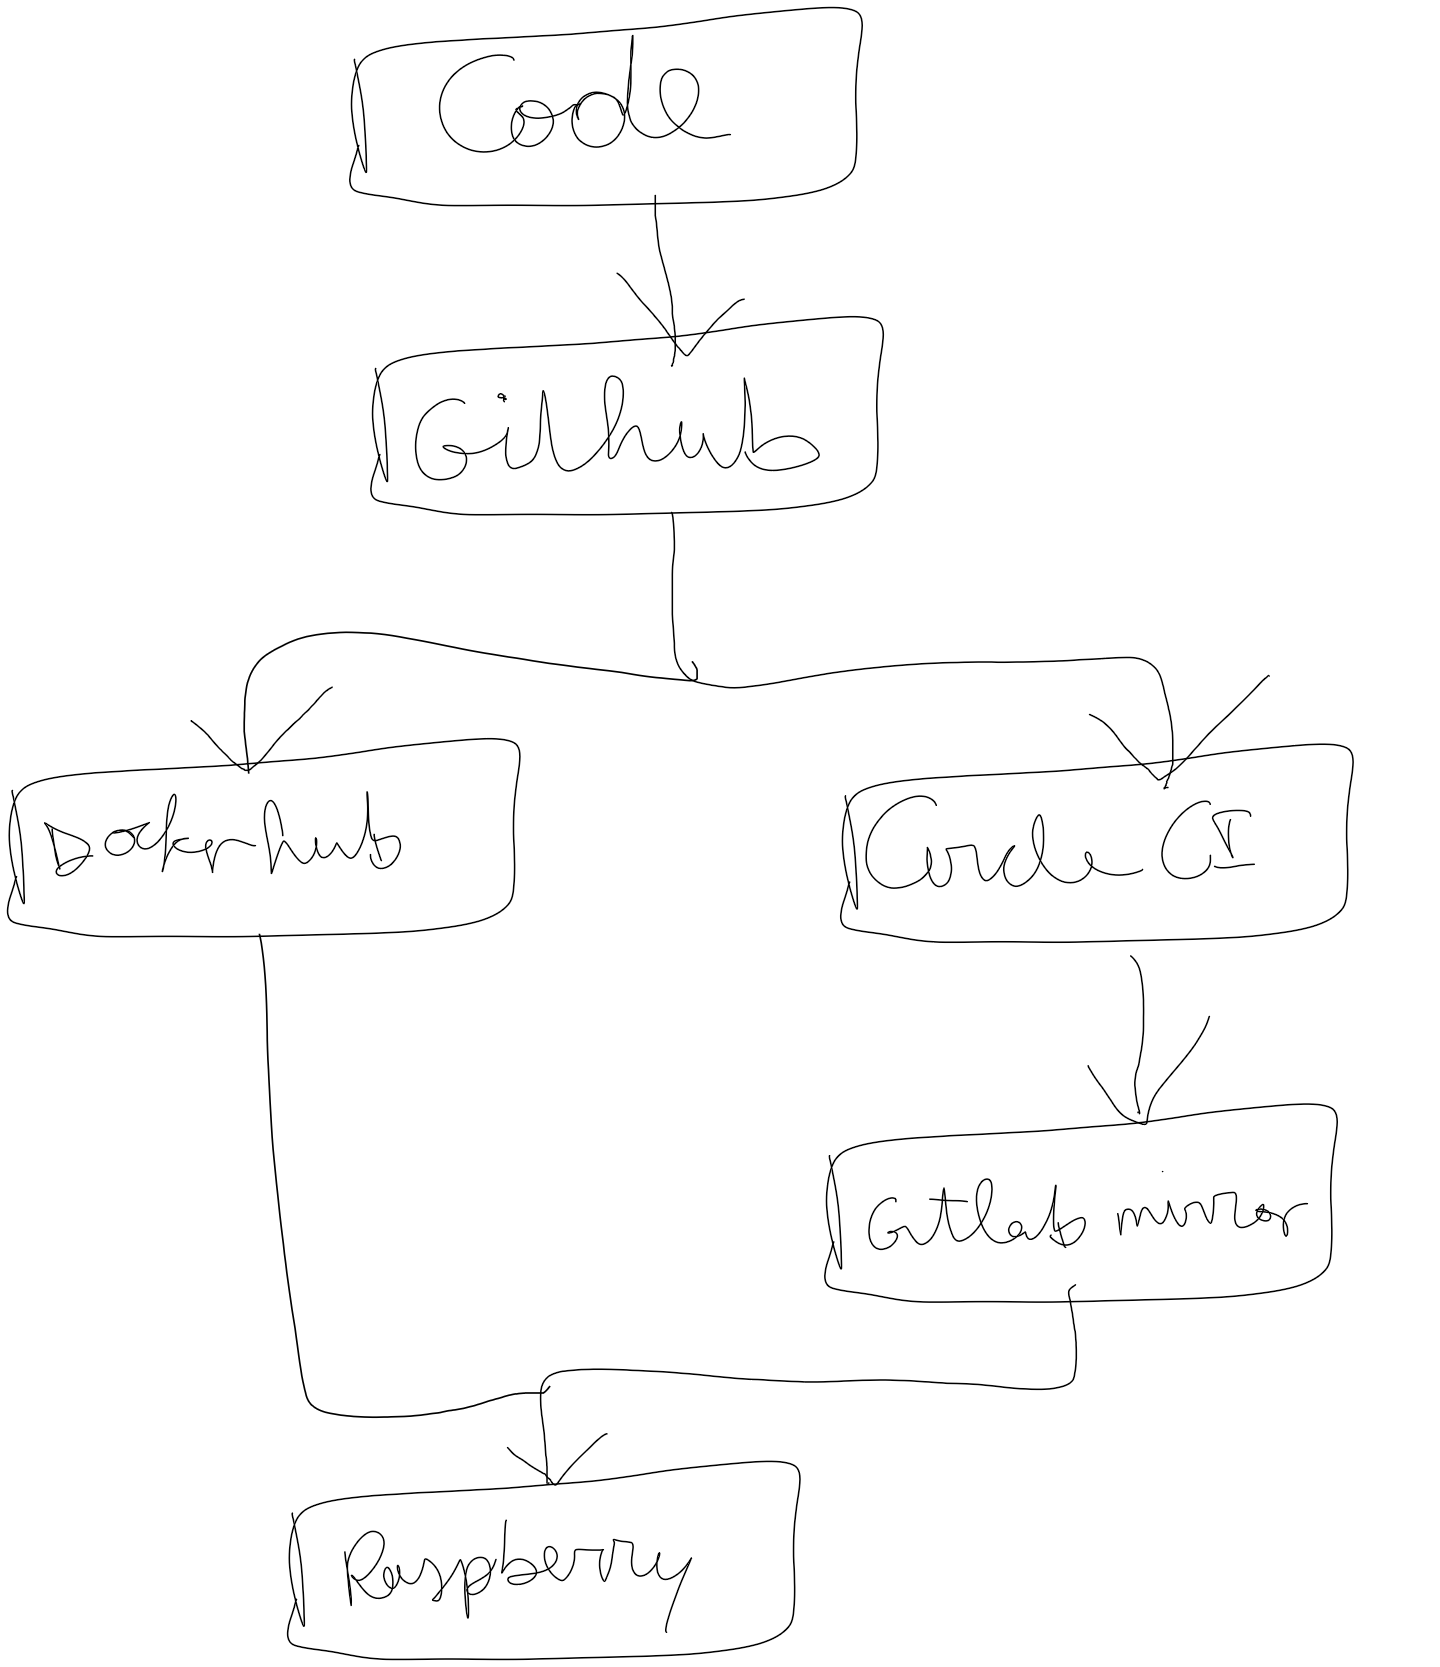 Code
Github
Dockerhub
Circle CI
Gitlab mirror
Raspberry